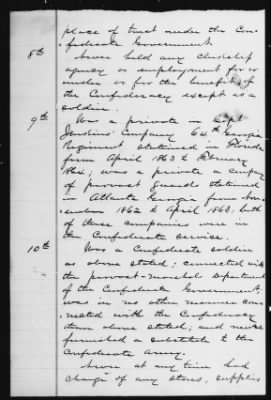 place of trust under the Con-
federate Government.
8th Never held any clerkship
agency or employment for or
under or for the benefit of
the Confederacy except as a
soldier.
9th Was a private in Capt
Jenkins' Company 64th Georgia
Regiment stationed in Florida
from April 1863 to February
1864; was a private a company
of provost guards stationed
in Atlanta Georgia from
1862 to April 1863, both
of these companies were in
the Confederate service.
10th Was a Confederate soldier
as above stated; connected with
the provost-marshal Department
of the Confederate Government,
was in no other manner con-
nected with the Confederacy
than above stated; and never
furnished a substitute to the
Confederate Army.
Never at any time had
charge of any stores, supplies